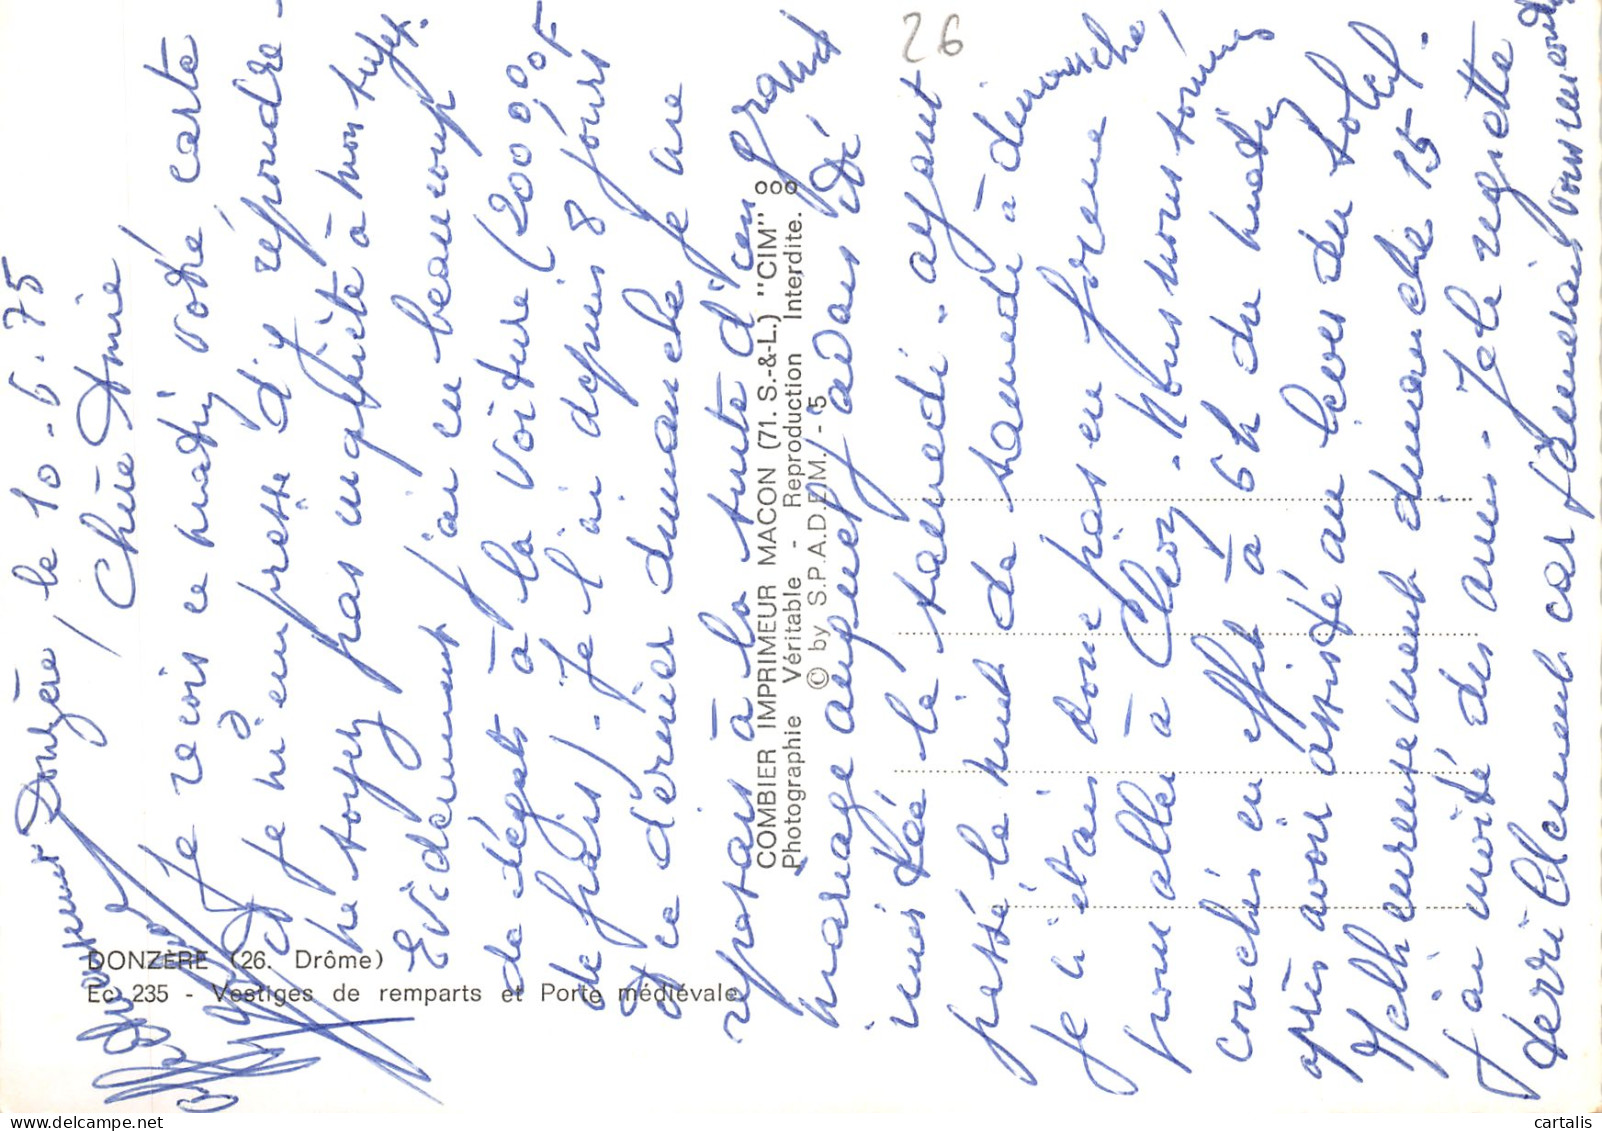 26
Donzère, le 10-6-75
Chère Amie
Je reçois ce matin votre carte
et je m'empresse d'y répondre -
ne soyez pas inquiète à mon sujet.
Evidemment j'ai eu beaucoup
de dégats à la voiture (2000,00F
de frais) - Je l'ai depuis 8 jours
et ce dernier dimanche je me
reposais à la suite d'un grand
mariage auquel j'avais
invitée le samedi - ayant
passé la nuit de samedi à dimanche
je n'étais donc pas en forme
pour aller à - Nous nous sommes
couchés en effet à 6h du matin
après avoir assisté au lever du soleil.
Malheureusement dimanche 15
j'ai invité des amis - Je le regrette
terriblement car j'aimerais
DONZÈRE (26. Drôme)
Ec 235 - Vestiges de remparts et Porte médiévale
COMBIER IMPRIMEUR MACON (71. S.-&-L.) "CIM" ooo
Photographie Véritable - Reproduction Interdite.
© by S.P.A.D.E.M. - 5
cartalis